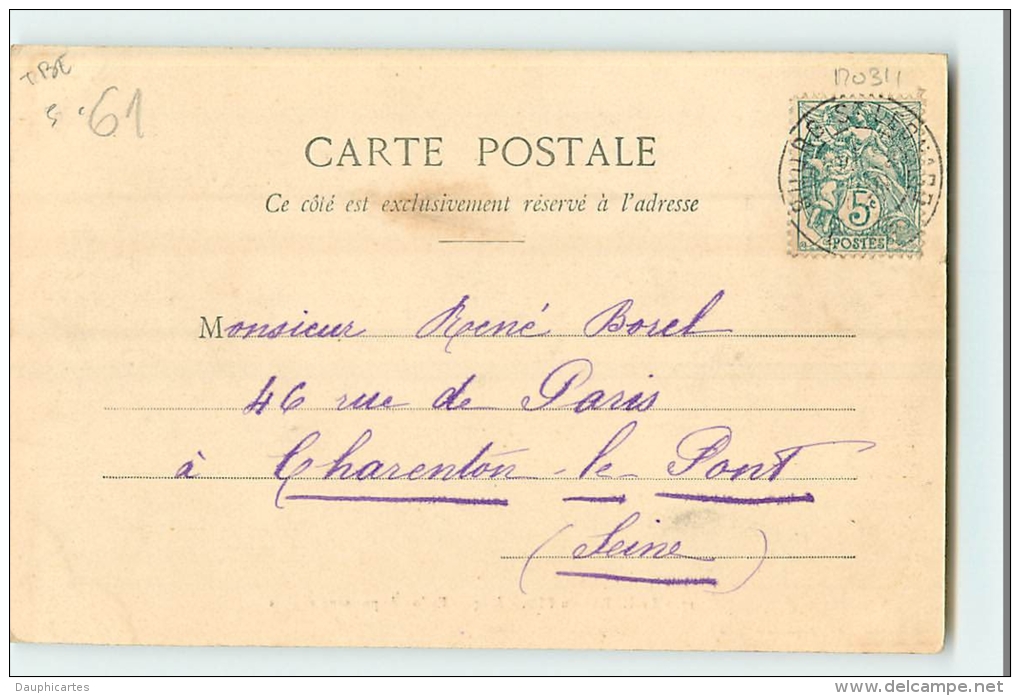 TBE
61
17031
CARTE POSTALE
Ce côté est exclusivement réservé à l'adresse
BOURG ST LEONARD
5c
POSTES
Monsieur René Borel
46 rue de Paris
à Charenton-le-Pont
(Seine)
Dauphicartes
www.delcampe.net